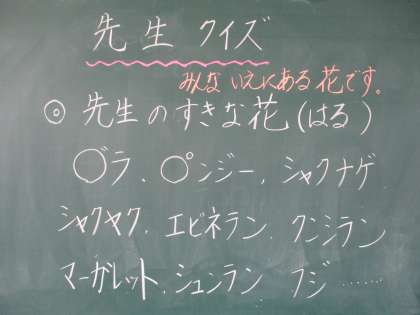 先生クイズ
みんないえにある花です。
◎先生のすきな花(はる)
○゛ラ、○゜ンジー、シャクナゲ
シャクヤク、エビネラン、クンシラン
マーガレット、シュンラン フジ……